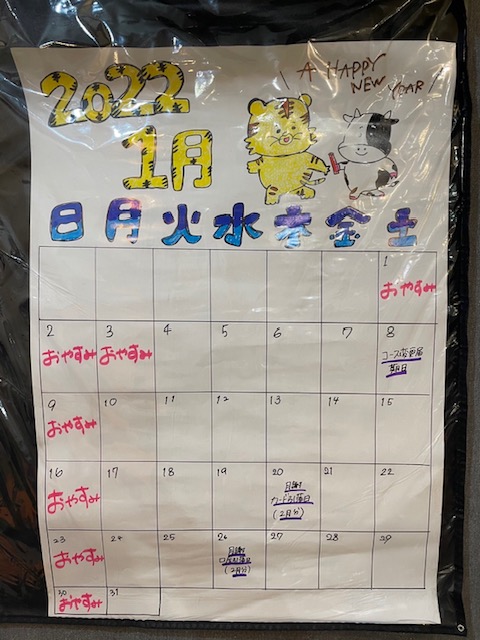 2022
1月
A HAPPY
NEW YEAR
日 月 火 水 木 金 土
1
おやすみ
2 3 4 5 6 7 8
おやすみ おやすみ
コース変更届
期日
9 10 11 12 13 14 15
おやすみ
16 17 18 19 20 21 22
おやすみ
月謝
カード引落日
(2月分)
23 24 25 26 27 28 29
おやすみ
月謝
口座引落日
(2月分)
30 31
おやすみ